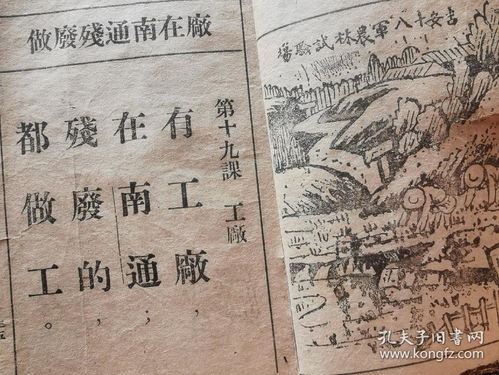 吉安十八軍農林試驗場
廠在南通殘廢做
第十九課 工廠
有工廠，
在南通，
殘廢的
都做工。
孔夫子旧书网
www.kongfz.com